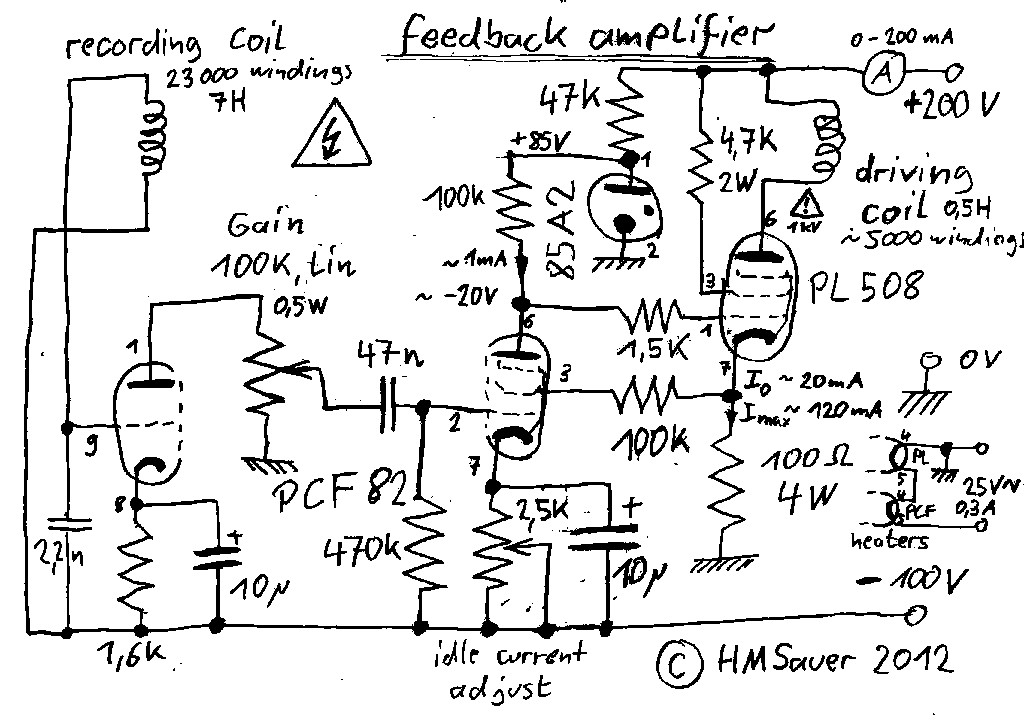 feedback amplifier
recording Coil
23 000 windings
7H
0-200 mA
A
+200 V
47K
+85V
1
4,7K
2W
100k
85A2
2
driving
coil 0,5H
~ 5000 windings
1kV
6
Gain
100K, Lin
0,5W
~ 1mA
~ -20V
3
PL 508
1
1,5K
6
1
47n
3
7
I₀ ~ 20mA
Imax ~ 120mA
0V
9
2
100k
PCF 82
7
100Ω
4W
4
PL
5
4
PCF
5
25V~
0,3A
heaters
8
2,2n
+
10µ
470k
2,5K
+
10µ
- 100V
1,6K
idle current
adjust
© HMSauer 2012